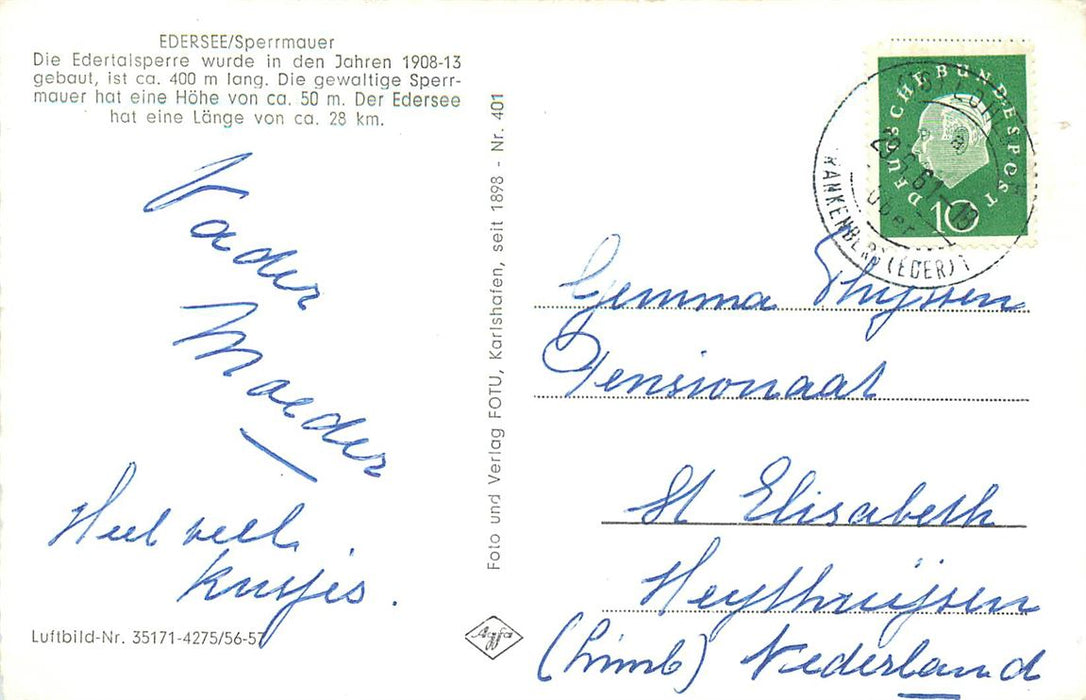 EDERSEE/Sperrmauer
Die Edertalsperre wurde in den Jahren 1908-13
gebaut, ist ca. 400 m lang. Die gewaltige Sperr-
mauer hat eine Höhe von ca. 50 m. Der Edersee
hat eine Länge von ca. 28 km.
Vader
Moeder
Heel veel
kusjes.
Luftbild-Nr. 35171-4275/56-57
Foto und Verlag FOTU, Karlshafen, seit 1898 - Nr. 401
Agfa
DEUTSCHE BUNDESPOST
10
über
FRANKENBERG (EDER) 1
Gemma Thyssen
Pensionaat
St Elisabeth
Heythuijsen
(Limb) Nederland